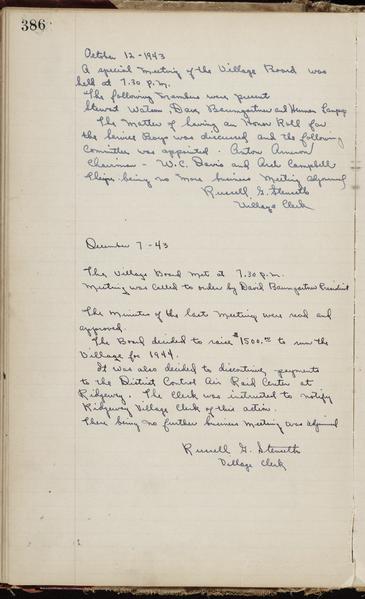 386
October 12 - 1943
A special Meeting of the Village Board was
held at 7.30 p.m.
The following Members were present
Stewart Watson Dave Baumgartner and Herman
The Matter of having an Honor Roll for
the Service Boys was discussed and the following
Committee was appointed. Anton
Chairman - W.C. Davis and Arch Campbell
being no more business Meeting adjourned
Russell G. Stenseth
Village Clerk
December 7 - 43
The Village Board Met at 7.30 p.m.
Meeting was called to order by David Baumgartner President
The Minutes of the last Meeting were read and
approved.
The Board decided to raise $1500.00 to run the
Village for 1944.
It was also decided to discontinue payments
to the District Control Air Raid Center at
Ridgeway. The Clerk was instructed to notify
Ridgeway Village Clerk of this action.
There being no further business Meeting was adjourned
Russell G. Stenseth
Village Clerk